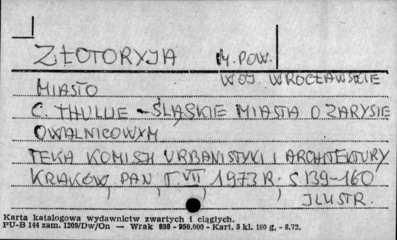 ZŁOTORYJA M. POW.
WOJ WROCŁAWSKIE
MIASTO
C. THULLIE - ŚLĄSKIE MIASTA O ZARYSIE
OWALNICOWYM
TEKA KOMISJI URBANISTYKI I ARCHITEKTURY
KRAKÓW, PAN T. VII 1973 R. S 139-160
ILUSTR.
Karta katalogowa wydawnictw zwartych i ciągłych.
PU-B 144 zam. 1209/Dw/On — Wrak 898 - 950.000 - Kart. 5 kl. 180 g. - 8.72.